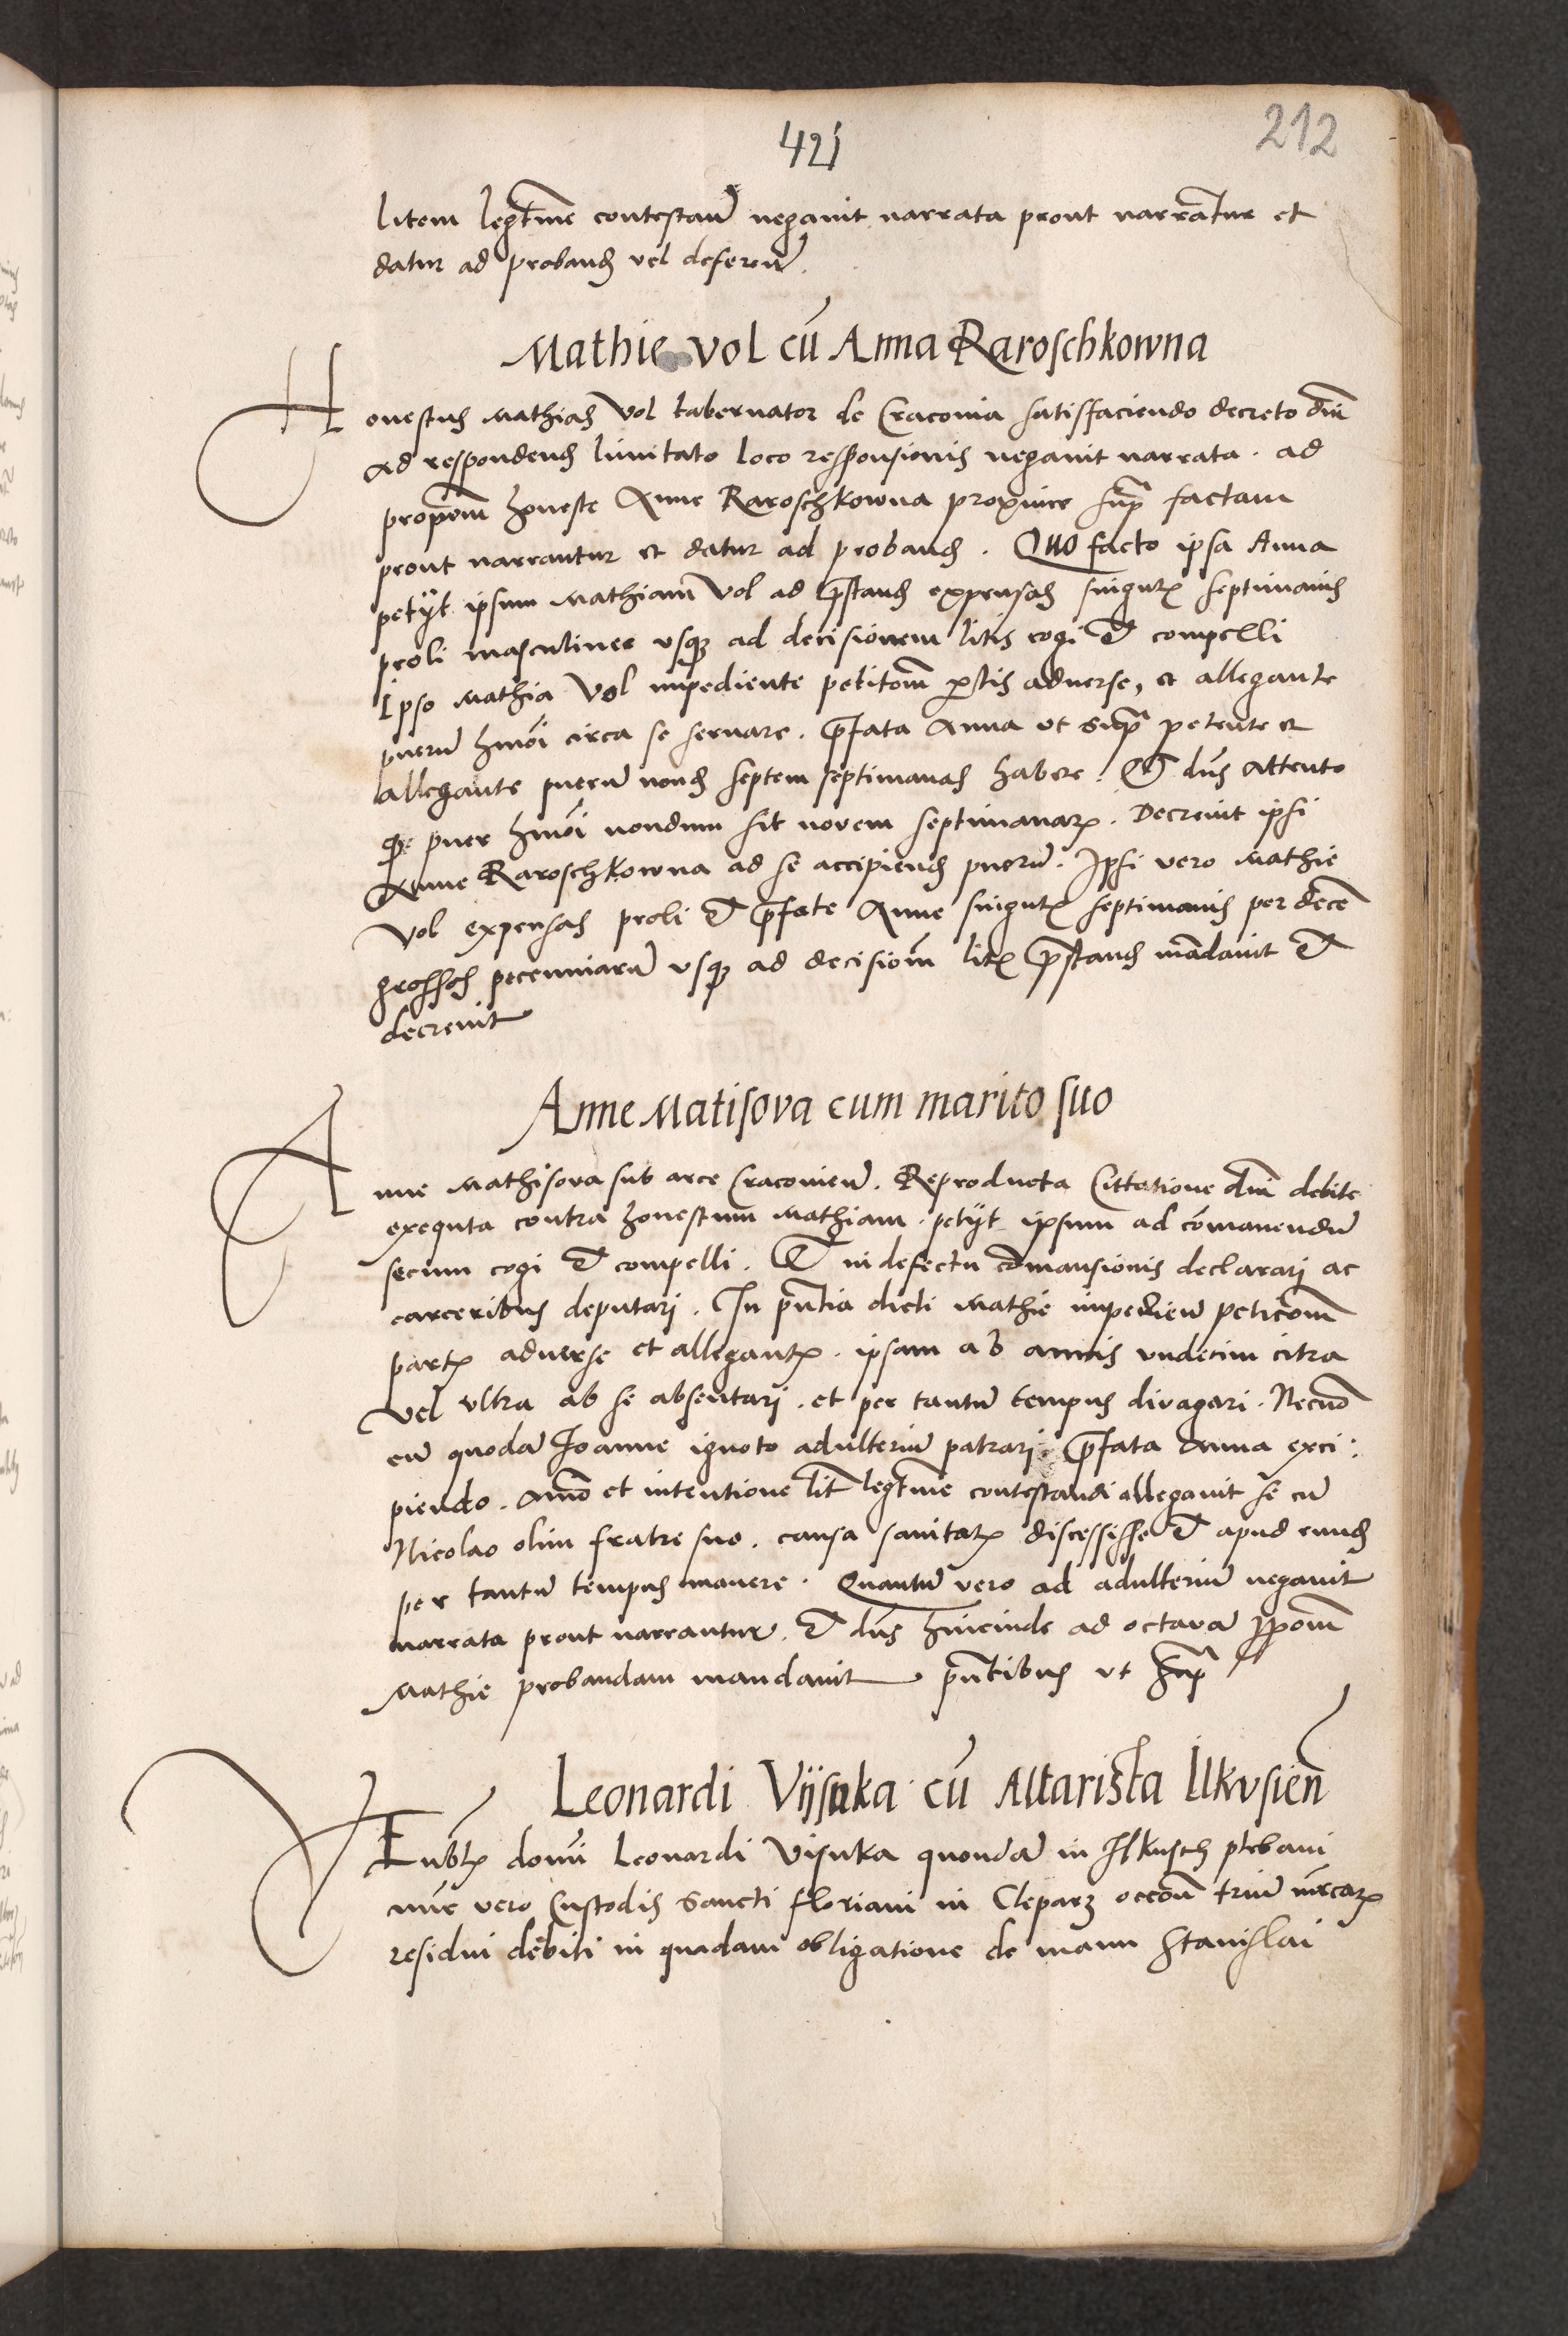 421
212
litem legtme contestan̄ negauit narrata prout narrātur et
datur ad proband vel deferen̄.
Mathie vol cū Anna Raroschkowna
Honestus Mathias Vol tabernator de Cracouia satisfaciendo decreto dni
ad respondend limitato loco responsionis negauit narrata. ad
propoēm honeste Anne Raroschkowna proxime supra factam
prout narrantur et datur ad proband. Quo facto ipsa Anna
petyt ipsum Mathiam Vol ad prestand expensas singul septimanis
proli masculinee vsq ad decisionem litis cogi et compelli
Ipso Mathia Vol impediente petitoēm prtis aduerse, et allegante
puerū hmōi circa se seruare. p̄fata Anna ut supra petente et
allegante puerū nond septem septimanas habere. Et dns Attento
qz puer hmōi nondum sit novem septimanar. Decreuit ipsi
Anne Raroschkowna ad se accipiend puerū. Ipsi vero Mathie
Vol expensas proli et p̄fate Anne singul septimanis per decē
grossos peccuniarū vsq ad decisioēm lit p̄stand mādauit et
decreuit
Anne Matisova cum marito suo
Anne Mathisova sub arce Cracouien̄. Reproducta Cittatione dni debite
exequta contra honestum Mathiam. petyt ipsum ad cōmanendū
secum cogi et compelli. Et in defectu cōmansionis declarari ac
carceribus deputari. In pn̄tia dicti Mathie impedien̄ peticoēm
part aduerse et allegant. ipsam ab annis vndecim citra
vel vltra ab se absentari. et per tantū tempus divagari. Necnō
cū quodā Joanne ignoto adulteriū patrari. p̄fata Anna exci:
piendo. Anōo et intentione lit legtme contestandi allegauit se cū
Nicolao olim fratre suo. causa sanitat discessisse et apud eund
per tantū tempus manere. Quantū vero ad adulteriū negauit
narrata prout narrantur. Et dns hincinde ad octavā ppoēm
Mathie probandam mandauit pn̄tibus ut supra
Leonardi Vijsuka cū Altarista Ilkusien̄
Venblis domi Leonardi Visuka quondā in Ilkusch plebani
nūc vero Custodis Sancti floriani in Cleparz occoē triū mrcar
residui debiti in quadam obligatione de manu Stanislai